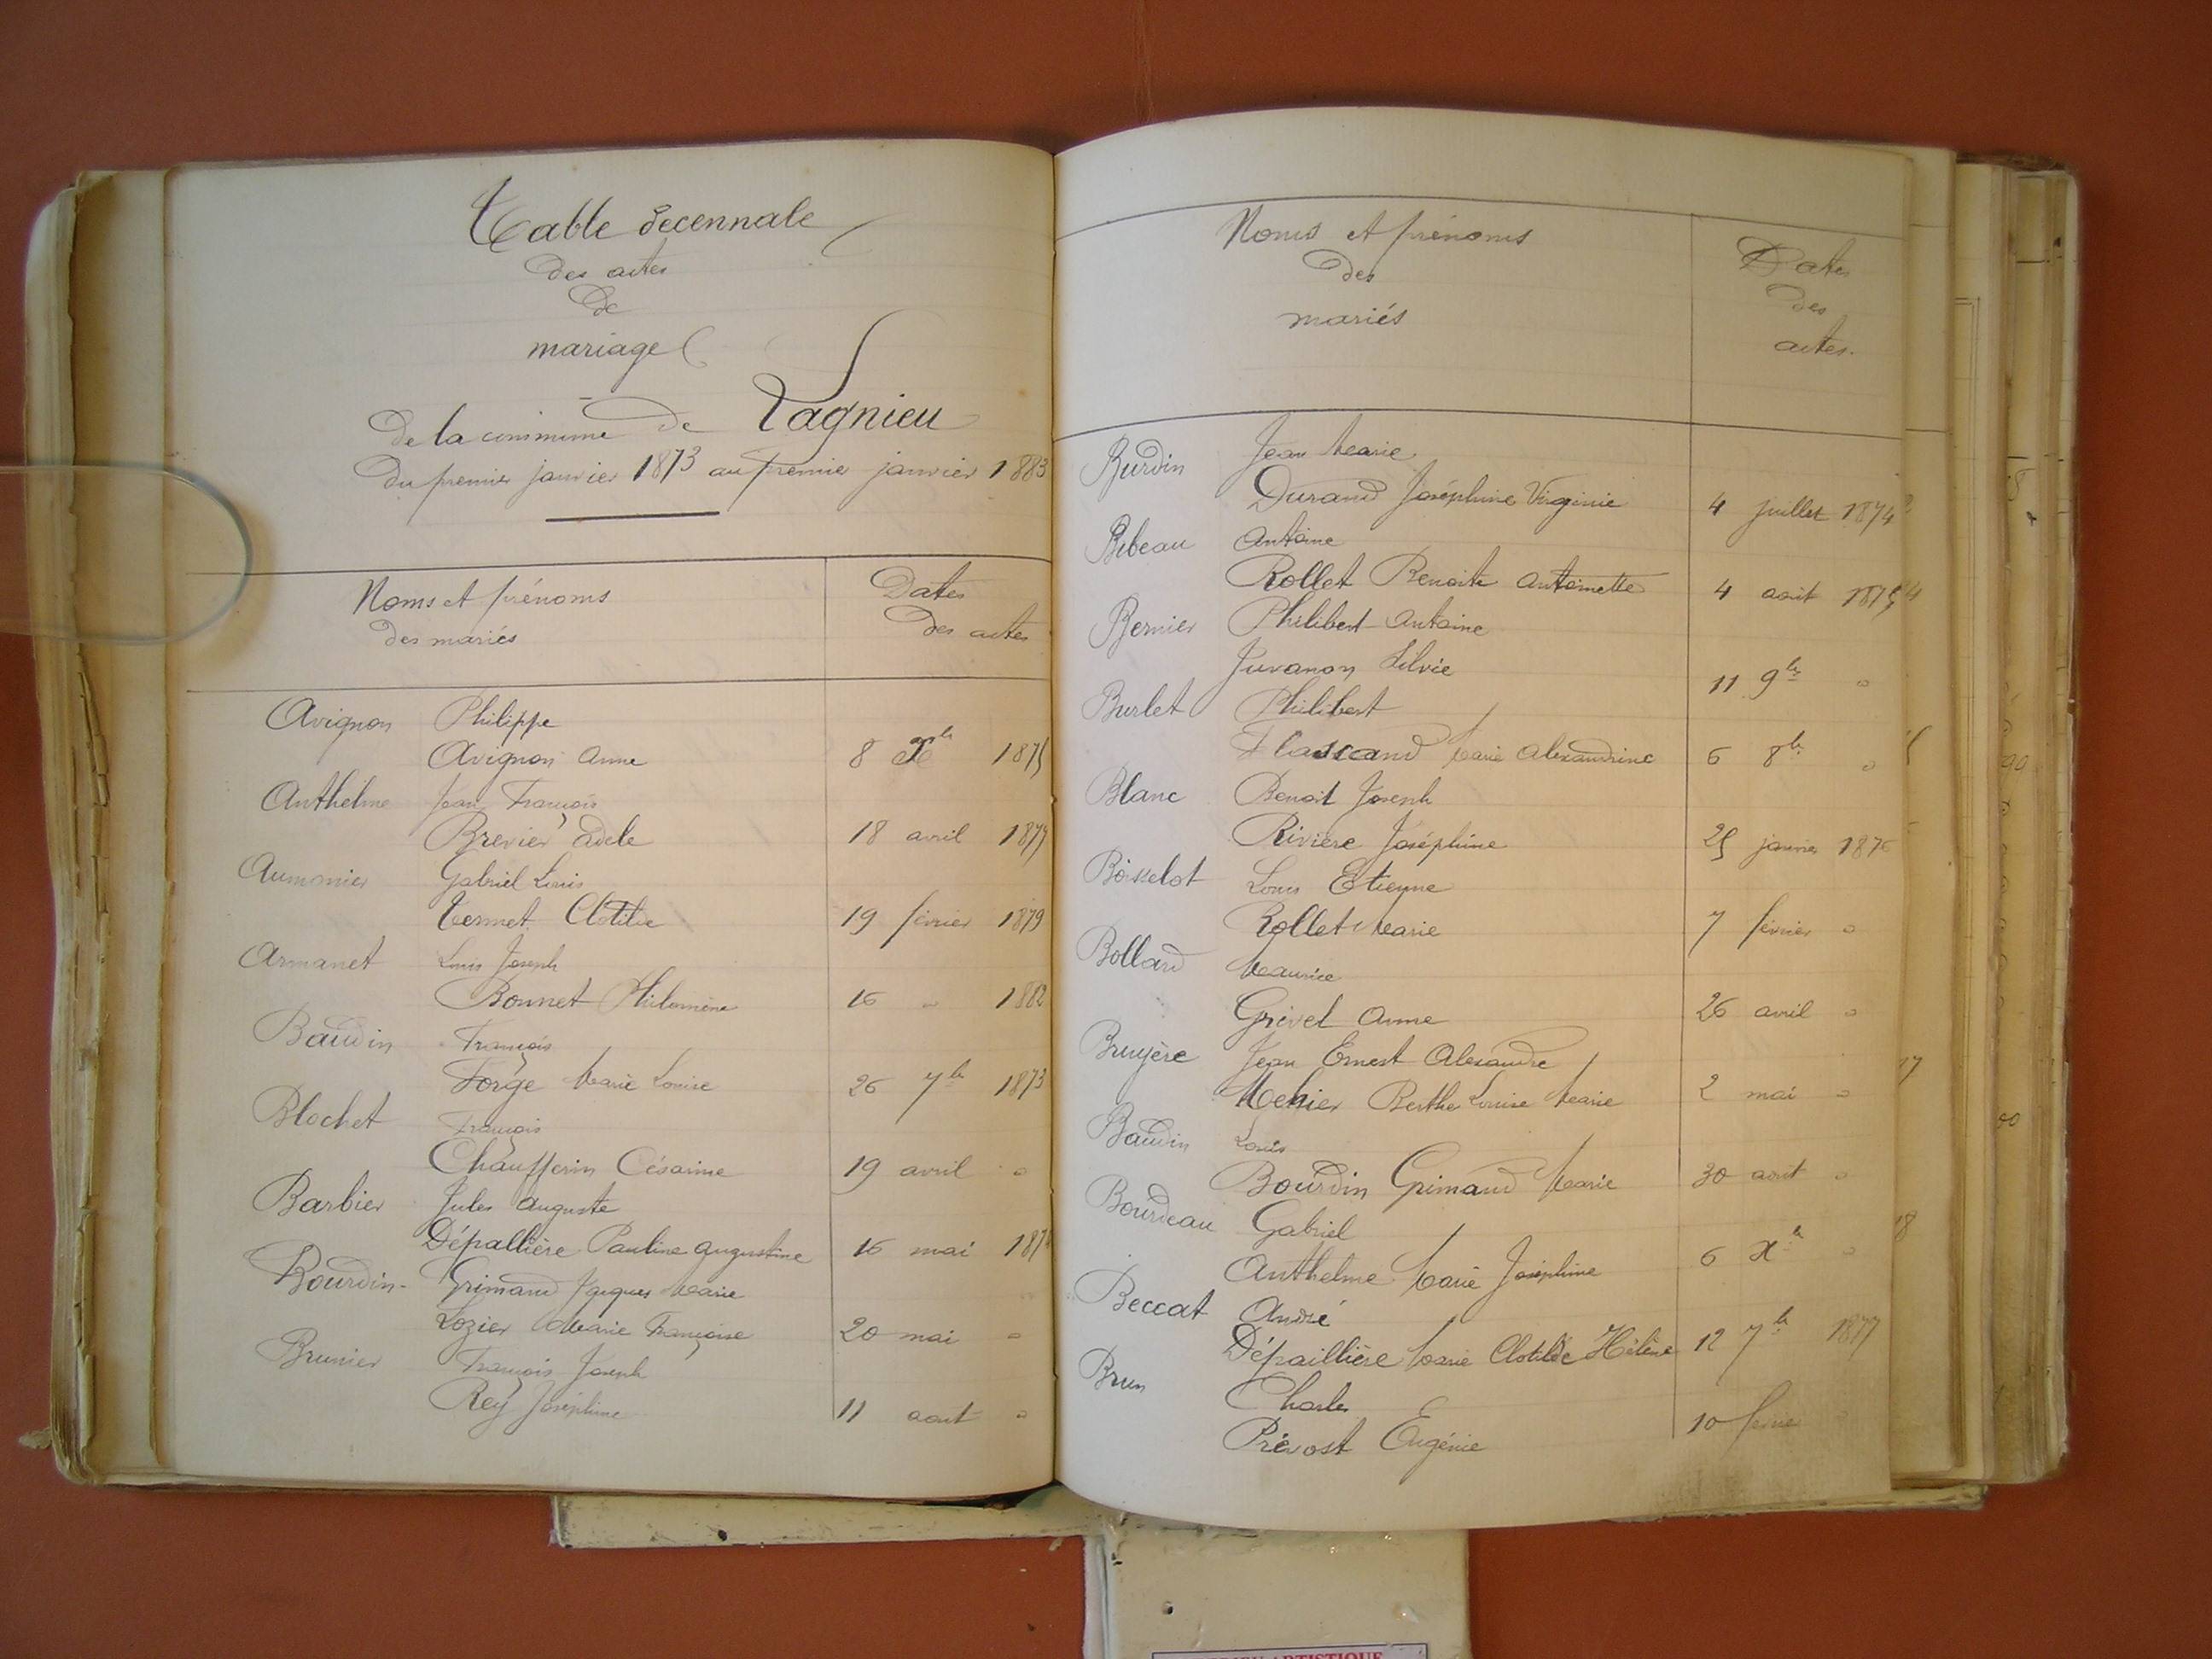 Table decennale
des actes
de
mariage
de la commune de Lagnieu
du premier janvier 1873 au premier janvier 1883
Noms et prénoms
des mariés
Dates
des actes
Avignon Philippe
Avignon Anne 8 Xbre 1875
Anthelme Jean François
Brevier Adele 18 avril 1877
Aumonier Gabriel Louis
Termet Clotilde 19 février 1879
Armanet Louis Joseph
Bonnet Philomène 16 " 1882
Baudin François
Forge Marie Louise 26 7bre 1873
Blochet François
Chaufferin Césarine 19 avril "
Barbier Jules Auguste
Dépallière Pauline Augustine 16 mai
Bourdin- Grimaud Jacques Marie
Lozier Marie Françoise 20 mai "
Brunier François Joseph
Rey Joséphine 11 aout "
Noms et prénoms
des
mariés
Dates
des
actes.
Burdin Jean Marie
Durand Joséphine Virginie 4 juillet 1874
Bibeau Antoine
Rollet Benoite Antoinette 4 aout 1875
Bernier Philibert Antoine
Juvanon Silvie 11 9bre "
Burlet Philibert
Flasscand Marie Alexandrine 6 8bre "
Blanc Benoit Joseph
Rivière Joséphine 25 janvier 1876
Boisselot Louis Etienne
Rollet Marie 7 février "
Bollard Maurice
Grivel Anne 26 avril "
Bruyère Jean Ernest Alexandre
Mehier Berthe Louise Marie 2 mai "
Baudin Louis
Bourdin Grimaud Marie 30 aout "
Bourdeau Gabriel
Anthelme Marie Joséphine 6 Xbre "
Beccat André
Dépaillière Marie Clotilde Hélène 12 7bre 1877
Brun Charles
Prévost Eugénie 10 fevrier